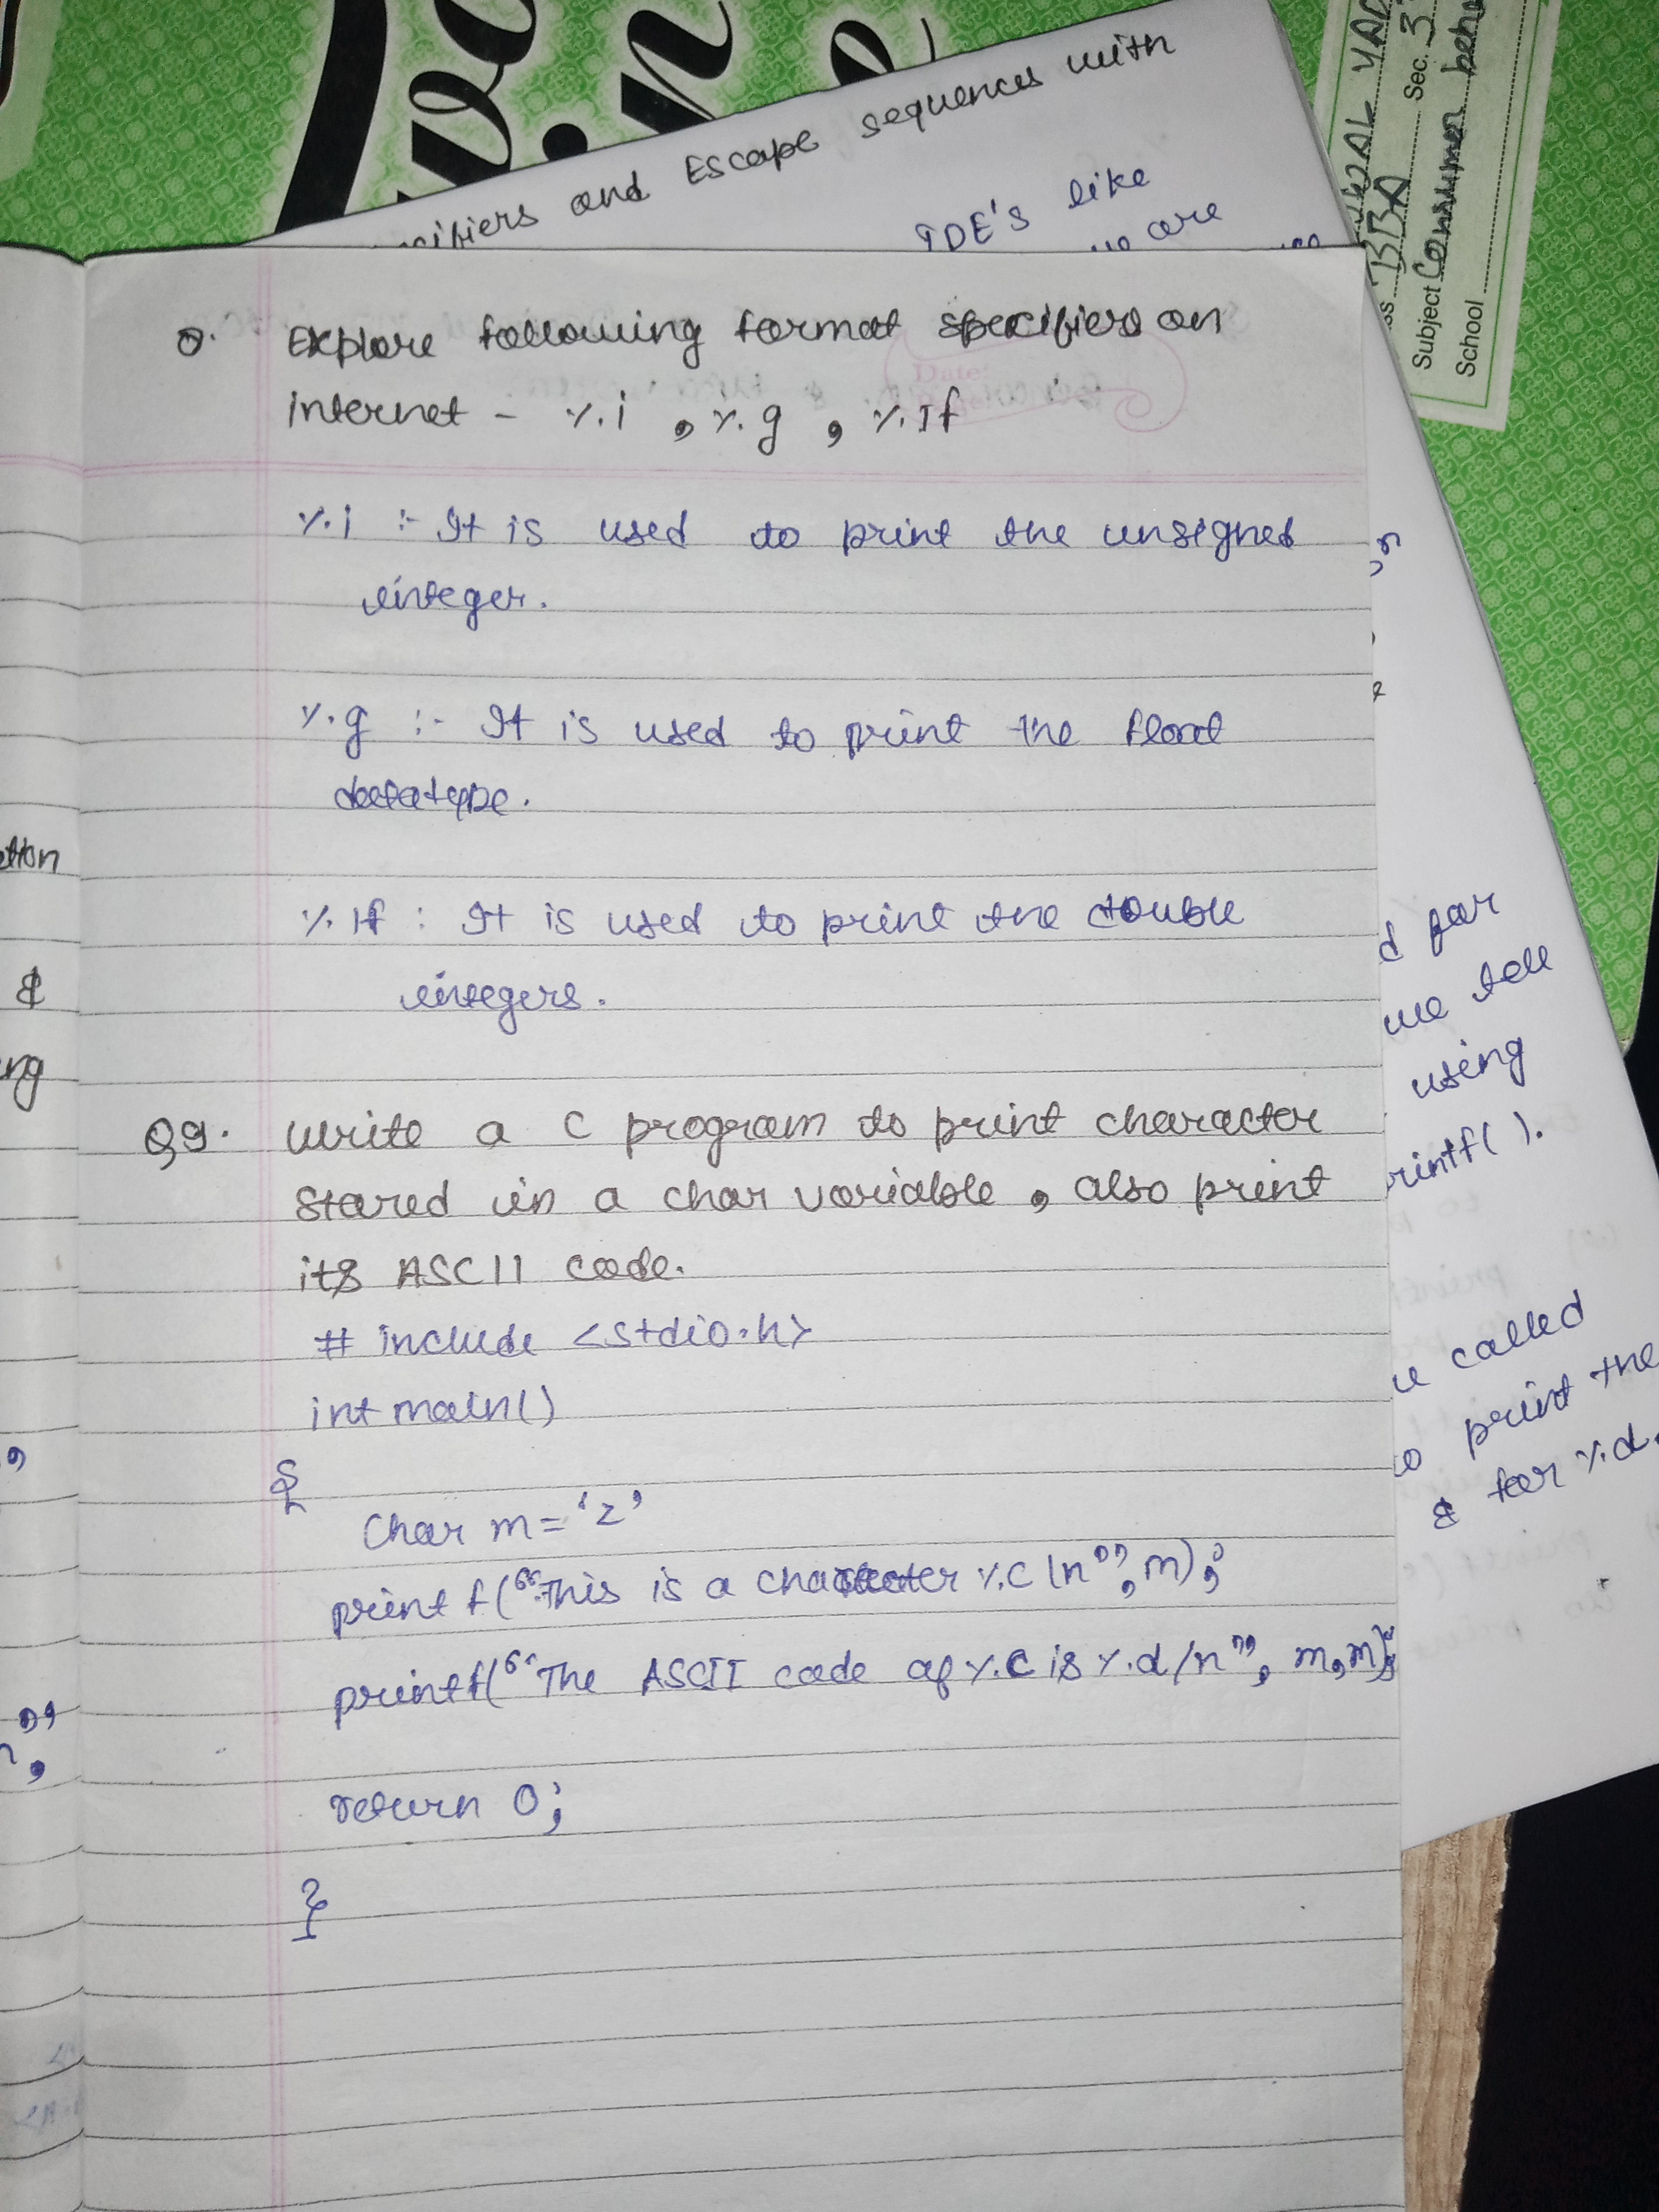 and Escape sequences with
IDE's like
are
YAD
BBA Sec. 3
Subject Consumer beh
School
Q. Explore following format specifiers on
internet - %i , %g , %lf
Date:
%i :- It is used to print the unsigned
integer.
%g :- It is used to print the float
datatype.
%lf : It is used to print the double
integers.
Q9. Write a C program to print character
stored in a char variable, also print
its ASCII code.
# include <stdio.h>
int main()
{
Char m = 'z'
printf("This is a character %c \n", m);
printf("The ASCII code of %c is %d/n", m,m);
return 0;
}
&
for
we tell
using
rintf( ).
called
print the
& for %d.